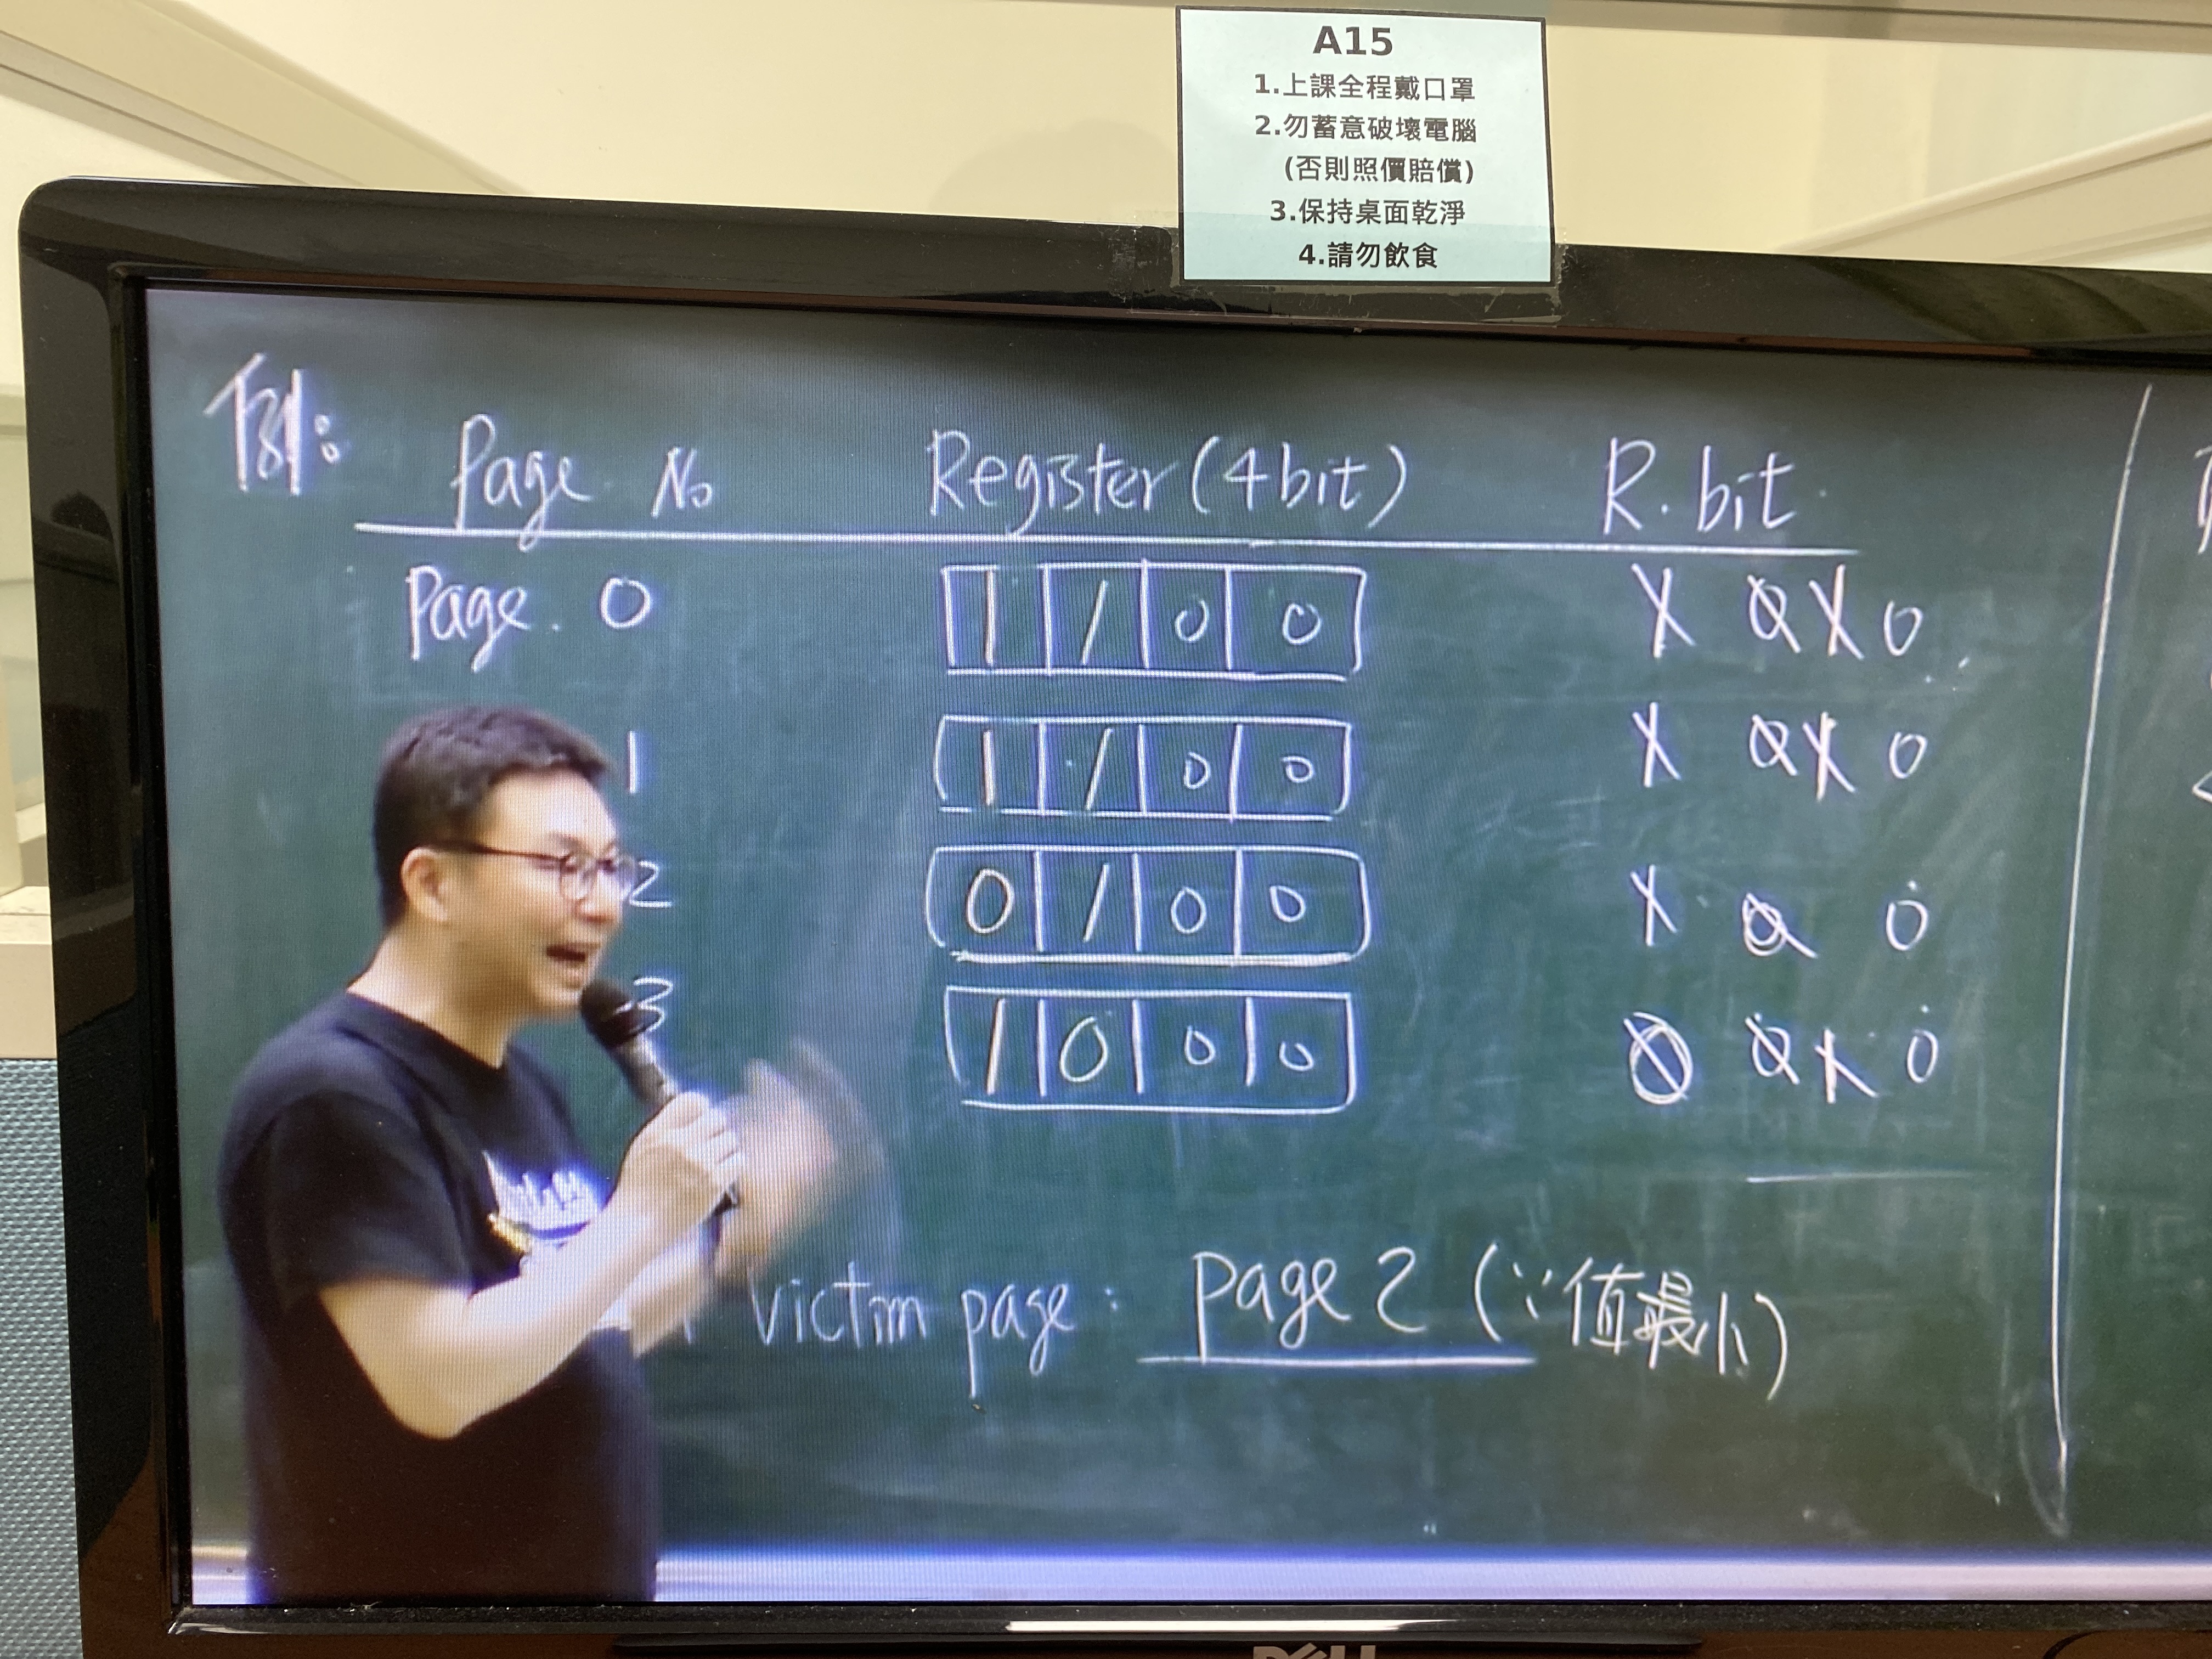 A15
1.上課全程戴口罩
2.勿蓄意破壞電腦
(否則照價賠償)
3.保持桌面乾淨
4.請勿飲食
例: Page No Register (4bit) R. bit
Page. 0 1 1 0 0 1 0 1 0
1 1 1 0 0 1 0 1 0
2 0 1 0 0 1 0 0
3 1 0 0 0 0 0 1 0
victim page: page 2 (∵值最小)
DELL